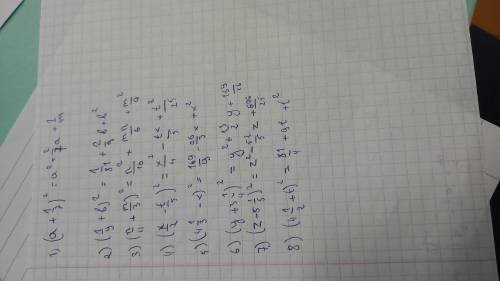 1) (a + 1/7)² = a² + 2/7 a +
2) (1/9 + b)² = 1/81 + 2/9 b + b²
3) (n/4 + m/3)² = n²/16 + mn/6 + m²/9
4) (x/2 - t/5)² = x²/4 - tx/5 + t²/25
5) (4 1/3 - x)² = 169/9 - 26/3 x + x²
6) (y + 3 1/4)² = y² + 13/2 y + 169/16
7) (z - 5 1/5)² = z² - 52/5 z + 676/25
8) (4 1/2 + t)² = 81/4 + 9t + t²